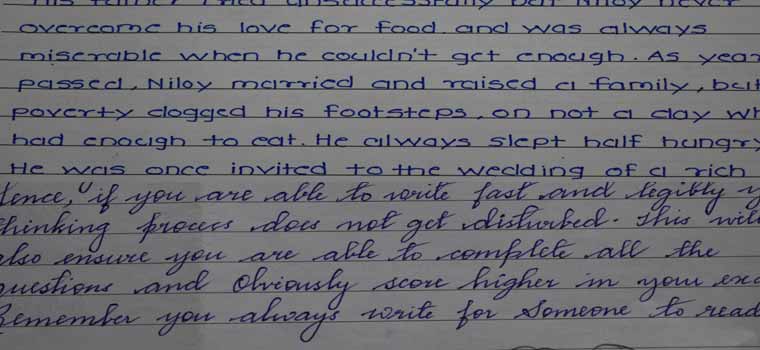 overcome his love for food and was always
miserable when he couldn't get enough. As
passed, Niloy married and raised a family, but
poverty clogged his footsteps, on not a day
had enough to eat. He always slept half hungry
He was once invited to the wedding of a rich
if you are able to write fast and legibly
thinking process does not get disturbed. This will
also ensure you are able to complete all the
questions and Obviously score higher in your
Remember you always write for Someone to read